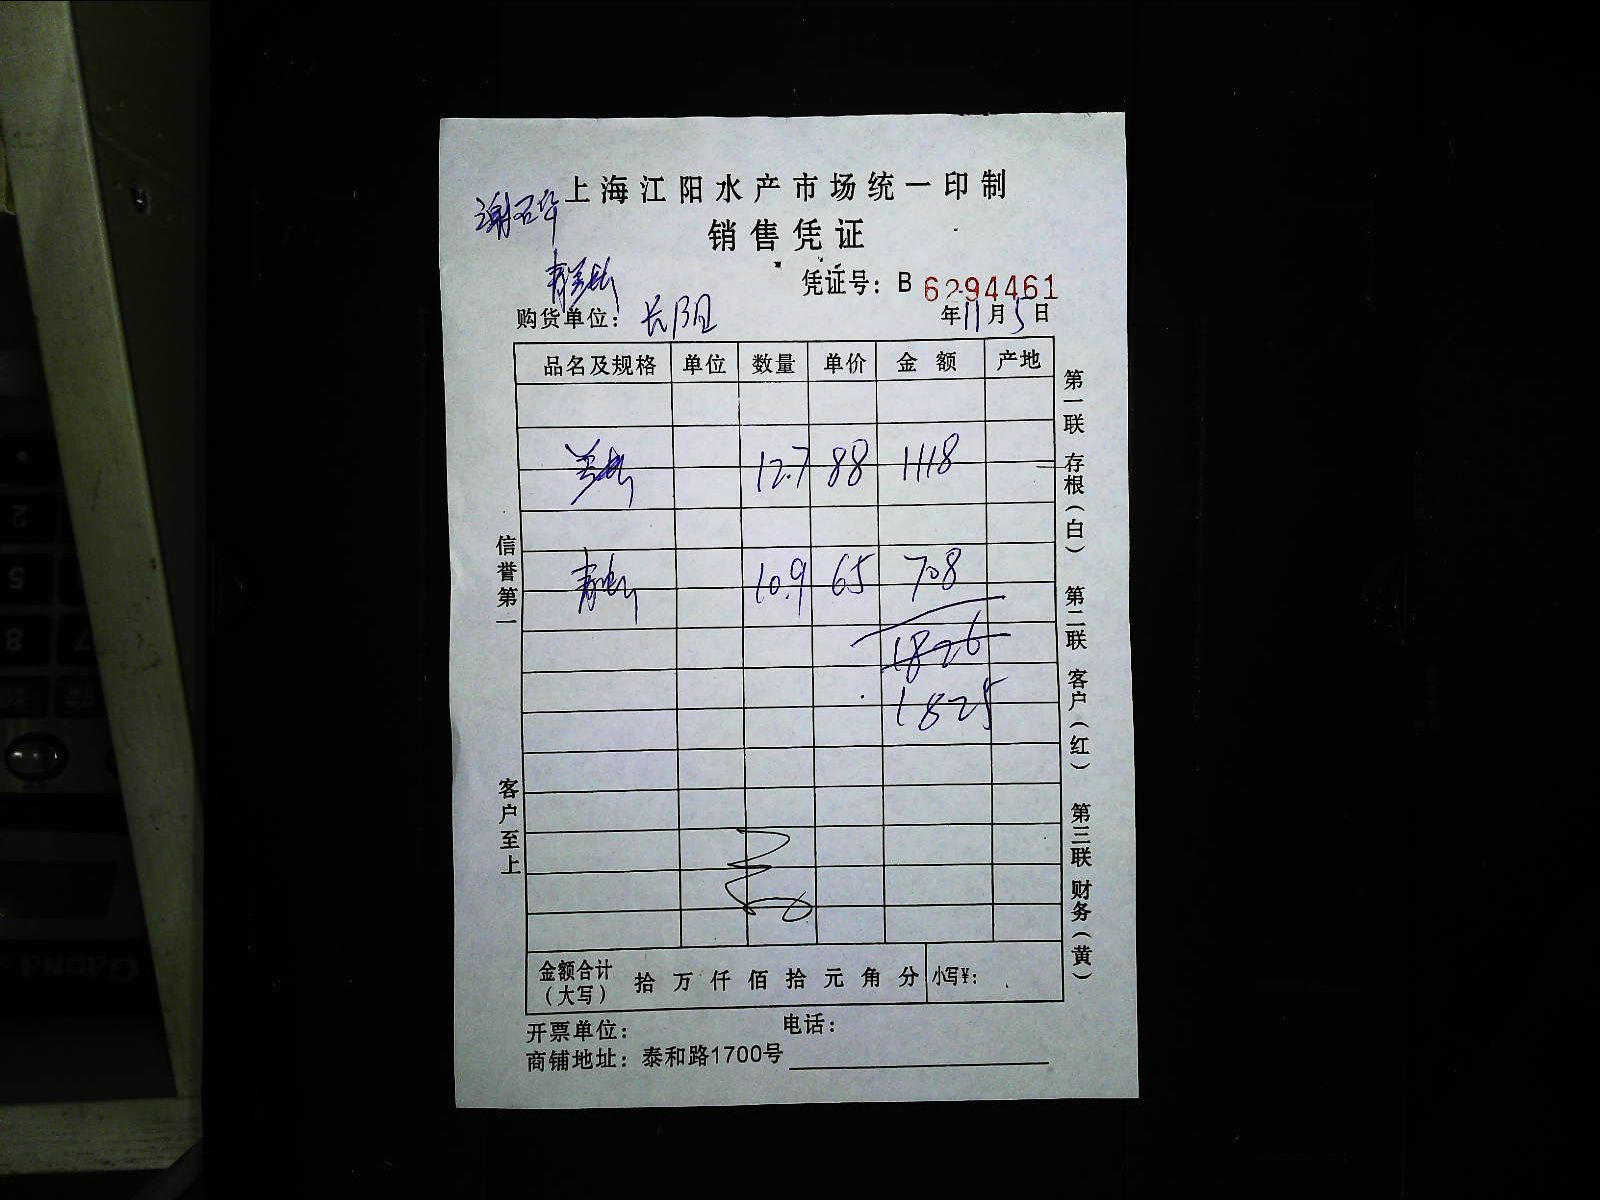 上海江阳水产市场统一印制
销售凭证
凭证号：B 6294461
购货单位：长阳
年11月5日
品名及规格 单位 数量 单价 金额 产地
12.7 88 1118
10.9 65 708
1826
1825
金额合计（大写） 拾 万 仟 佰 拾 元 角 分 小写¥：
开票单位： 电话：
商铺地址：泰和路1700号
信誉第一
客户至上
第一联 存根（白） 第二联 客户（红） 第三联 财务（黄）